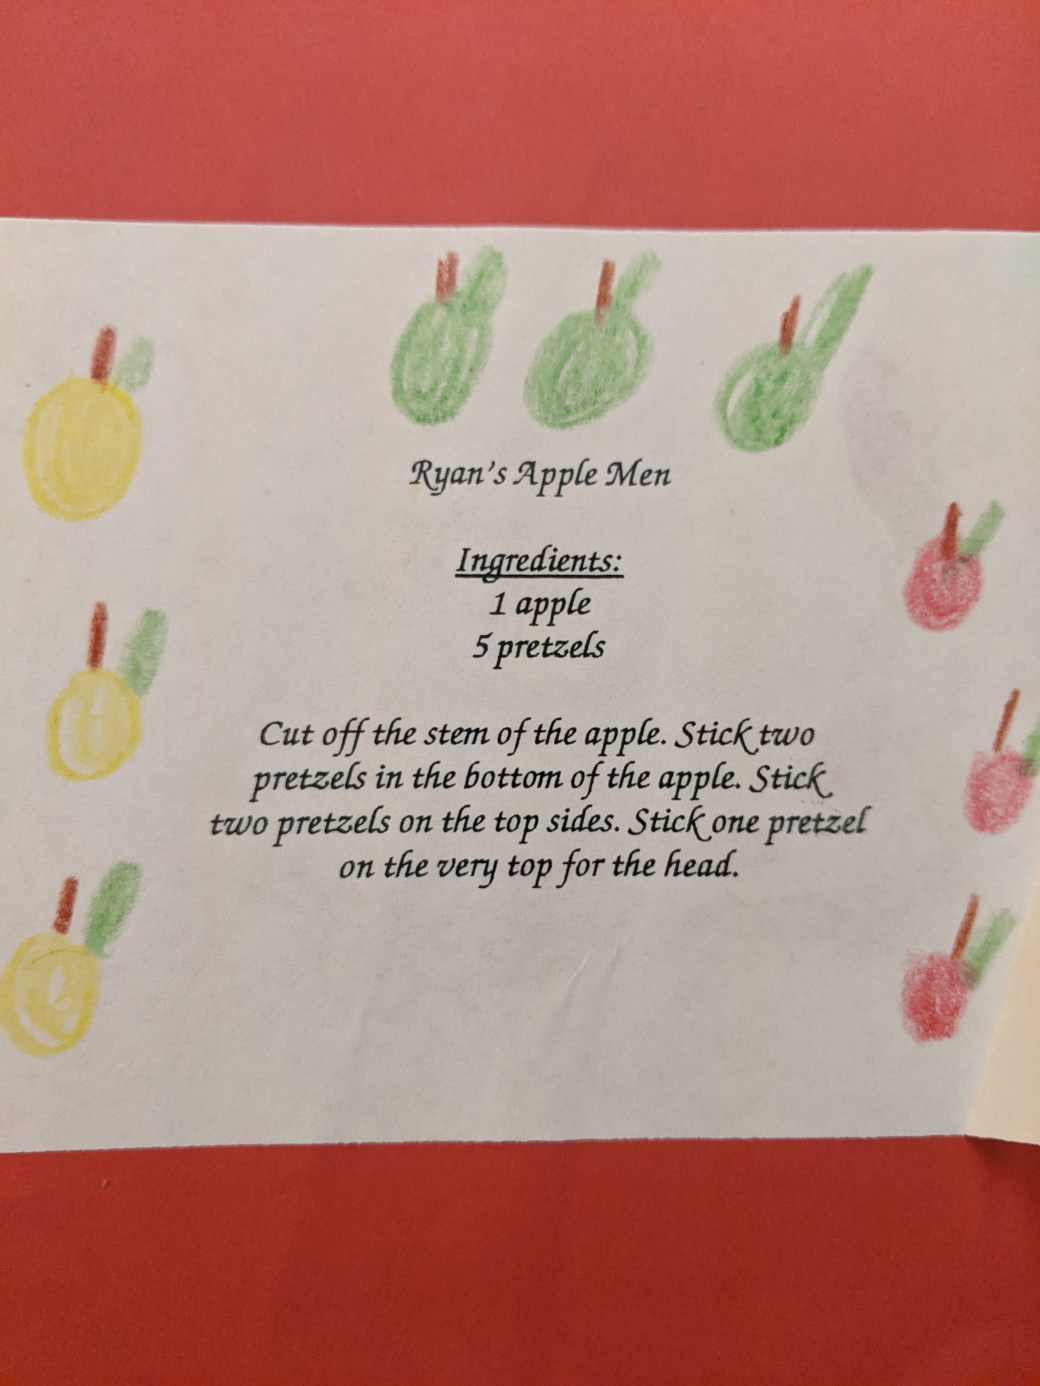 Ryan's Apple Men
Ingredients:
1 apple
5 pretzels
Cut off the stem of the apple. Stick two
pretzels in the bottom of the apple. Stick
two pretzels on the top sides. Stick one pretzel
on the very top for the head.